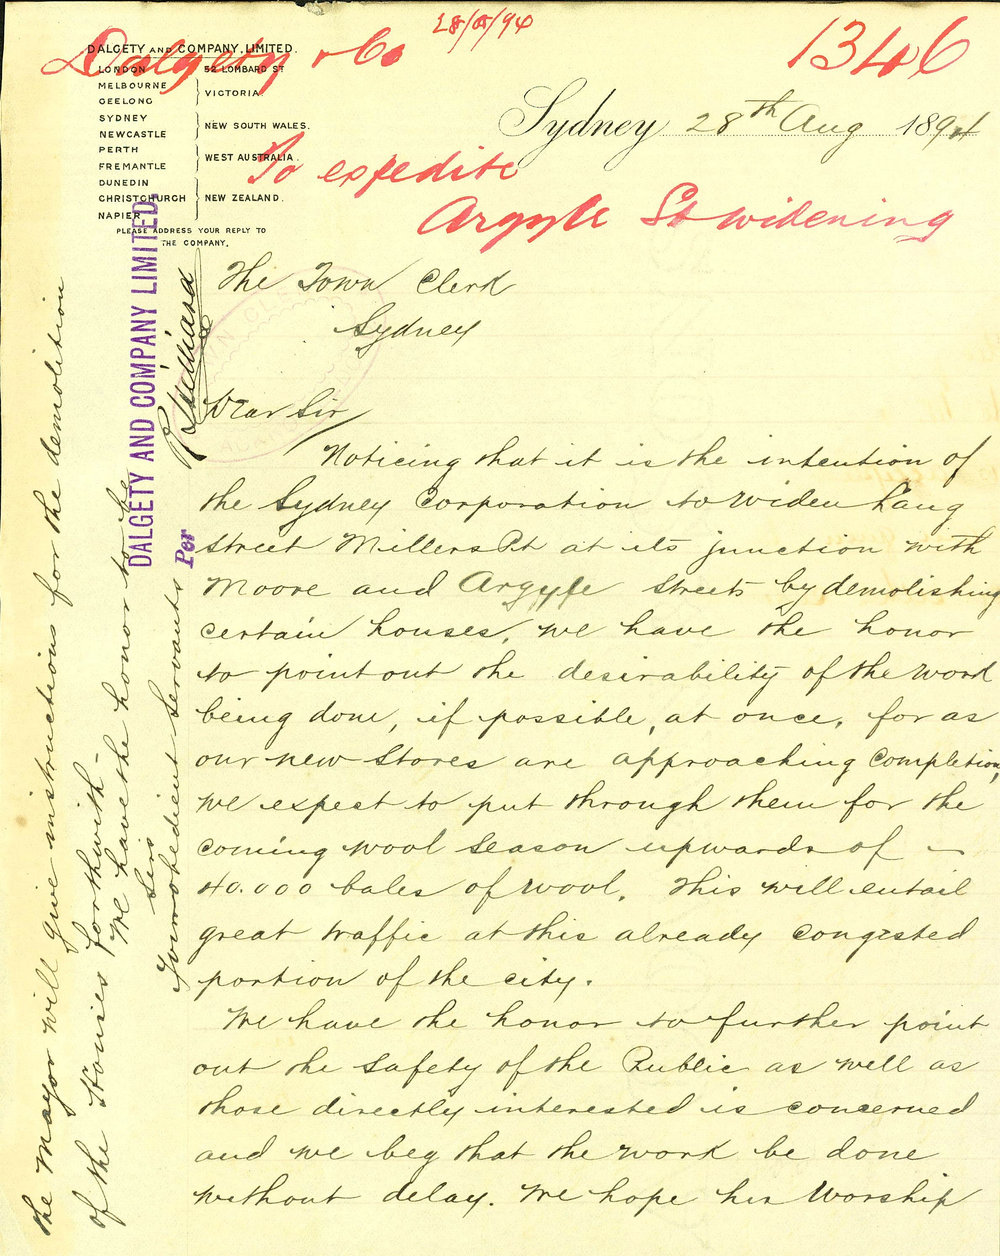 28/8/94
Dalgety & Co
1346
DALGETY AND COMPANY, LIMITED.
LONDON 52 LOMBARD ST
MELBOURNE
GEELONG
VICTORIA.
SYDNEY
NEWCASTLE
NEW SOUTH WALES.
PERTH
FREMANTLE
WEST AUSTRALIA.
DUNEDIN
CHRISTCHURCH
NAPIER
NEW ZEALAND.
PLEASE ADDRESS YOUR REPLY TO
THE COMPANY.
Sydney 28th Aug 1894
To expedite
Argyle St widening
The Town Clerk
Sydney
Dear Sir
Noticing that it is the intention of
the Sydney Corporation to widen Lang
Street Millers Pt at its junction with
Moore and Argyle Streets by demolishing
certain houses, we have the honor
to point out the desirability of the work
being done, if possible, at once, for as
our new Stores are approaching completion,
we expect to put through them for the
coming wool season upwards of -
40.000 bales of wool. This will entail
great traffic at this already congested
portion of the city.
We have the honor to further point
out the safety of the Public as well as
those directly interested is concerned
and we beg that the work be done
without delay. We hope his Worship
the Mayor will give instructions for the demolition
of the Houses forthwith -
We have the honor to be
Sirs
Your obedient Servants
DALGETY AND COMPANY LIMITED.
Per